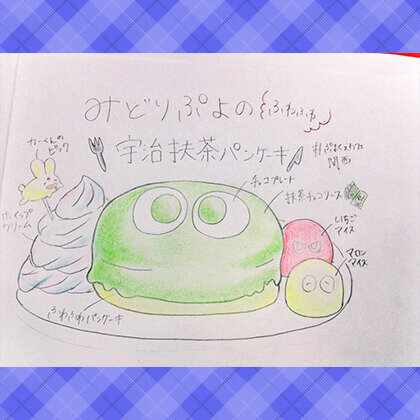 みどりぷよの
ふわふわ
宇治抹茶パンケーキ
#ぷよくえカフェ
関西
カーくんの
ピック
ホイップ
クリーム
チョコプレート
抹茶チョコソース
いちご
アイス
マロン
アイス
ふわふわパンケーキ